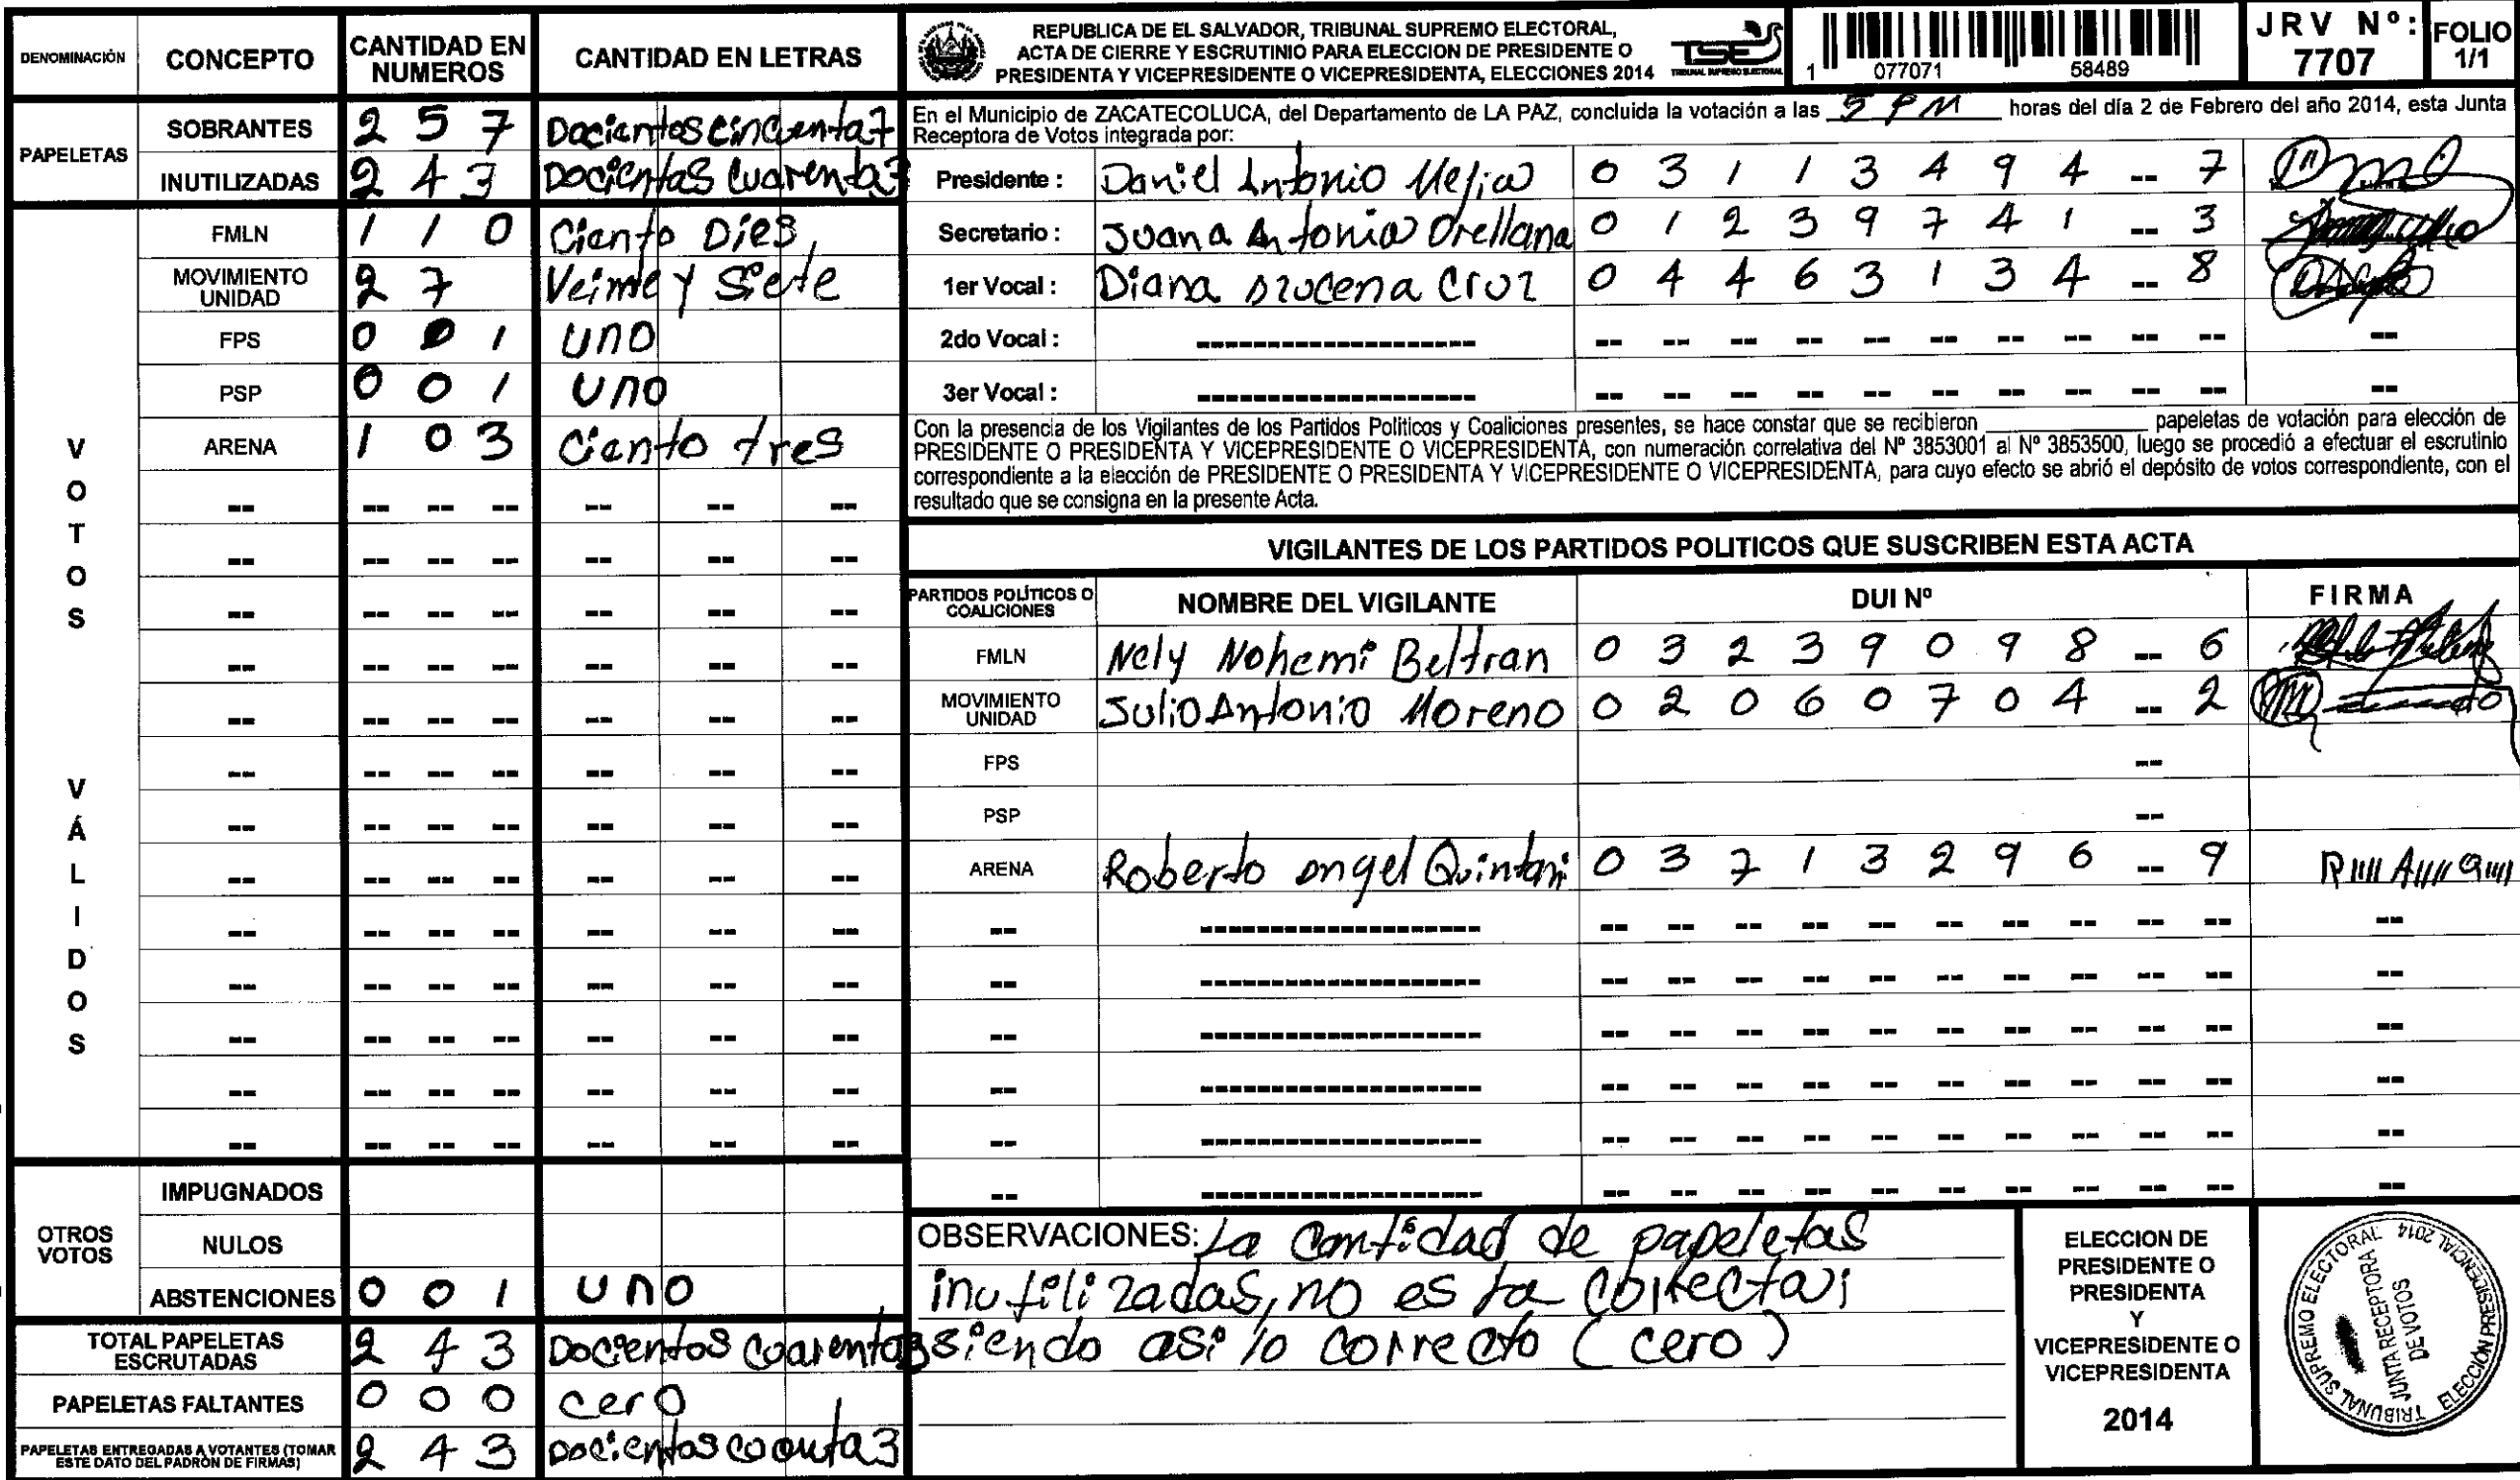 DENOMINACIÓN CONCEPTO CANTIDAD EN NUMEROS CANTIDAD EN LETRAS
PAPELETAS
SOBRANTES 2 5 7 Docientos cincuenta 7
INUTILIZADAS 2 4 3 Docientas Cuarenta 3
VOTOS VÁLIDOS
FMLN 1 1 0 Ciento Dies
MOVIMIENTO UNIDAD 2 7 Veinte y Siete
FPS 0 0 1 uno
PSP 0 0 1 uno
ARENA 1 0 3 Ciento tres
OTROS VOTOS
IMPUGNADOS
NULOS
ABSTENCIONES 0 0 1 uno
TOTAL PAPELETAS ESCRUTADAS 2 4 3 Docientos Cuarenta 3
PAPELETAS FALTANTES 0 0 0 cero
PAPELETAS ENTREGADAS A VOTANTES (TOMAR ESTE DATO DEL PADRÓN DE FIRMAS) 2 4 3
REPUBLICA DE EL SALVADOR, TRIBUNAL SUPREMO ELECTORAL,
ACTA DE CIERRE Y ESCRUTINIO PARA ELECCION DE PRESIDENTE O
PRESIDENTA Y VICEPRESIDENTE O VICEPRESIDENTA, ELECCIONES 2014
TSE
TRIBUNAL SUPREMO ELECTORAL
1 077071 58489
JRV Nº: 7707
FOLIO 1/1
En el Municipio de ZACATECOLUCA, del Departamento de LA PAZ, concluida la votación a las 5 PM horas del día 2 de Febrero del año 2014, esta Junta
Receptora de Votos integrada por:
Presidente : Daniel Antonio Mejia 0 3 1 1 3 4 9 4 -- 7
Secretario : Juana Antonia Orellana 0 1 2 3 9 7 4 1 -- 3
1er Vocal : Diana Cruz 0 4 4 6 3 1 3 4 -- 8
2do Vocal :
3er Vocal :
Con la presencia de los Vigilantes de los Partidos Políticos y Coaliciones presentes, se hace constar que se recibieron ____ papeletas de votación para elección de
PRESIDENTE O PRESIDENTA Y VICEPRESIDENTE O VICEPRESIDENTA, con numeración correlativa del Nº 3853001 al Nº 3853500, luego se procedió a efectuar el escrutinio
correspondiente a la elección de PRESIDENTE O PRESIDENTA Y VICEPRESIDENTE O VICEPRESIDENTA, para cuyo efecto se abrió el depósito de votos correspondiente, con el
resultado que se consigna en la presente Acta.
VIGILANTES DE LOS PARTIDOS POLITICOS QUE SUSCRIBEN ESTA ACTA
PARTIDOS POLÍTICOS O COALICIONES NOMBRE DEL VIGILANTE DUI Nº FIRMA
FMLN Nely Nohemi Beltran 0 3 2 3 9 0 9 8 -- 6
MOVIMIENTO UNIDAD Julio Antonio Moreno 0 2 0 6 0 7 0 4 -- 2
FPS --
PSP --
ARENA Roberto angel Quintani 0 3 7 1 3 2 9 6 -- 9
OBSERVACIONES: La Cantidad de papeletas
inutilizadas, no es ta correcta;
siendo asi lo correcto (cero)
ELECCION DE
PRESIDENTE O
PRESIDENTA
Y
VICEPRESIDENTE O
VICEPRESIDENTA
2014
TRIBUNAL SUPREMO ELECTORAL
ELECCIÓN PRESIDENCIAL 2014
JUNTA RECEPTORA
DE VOTOS